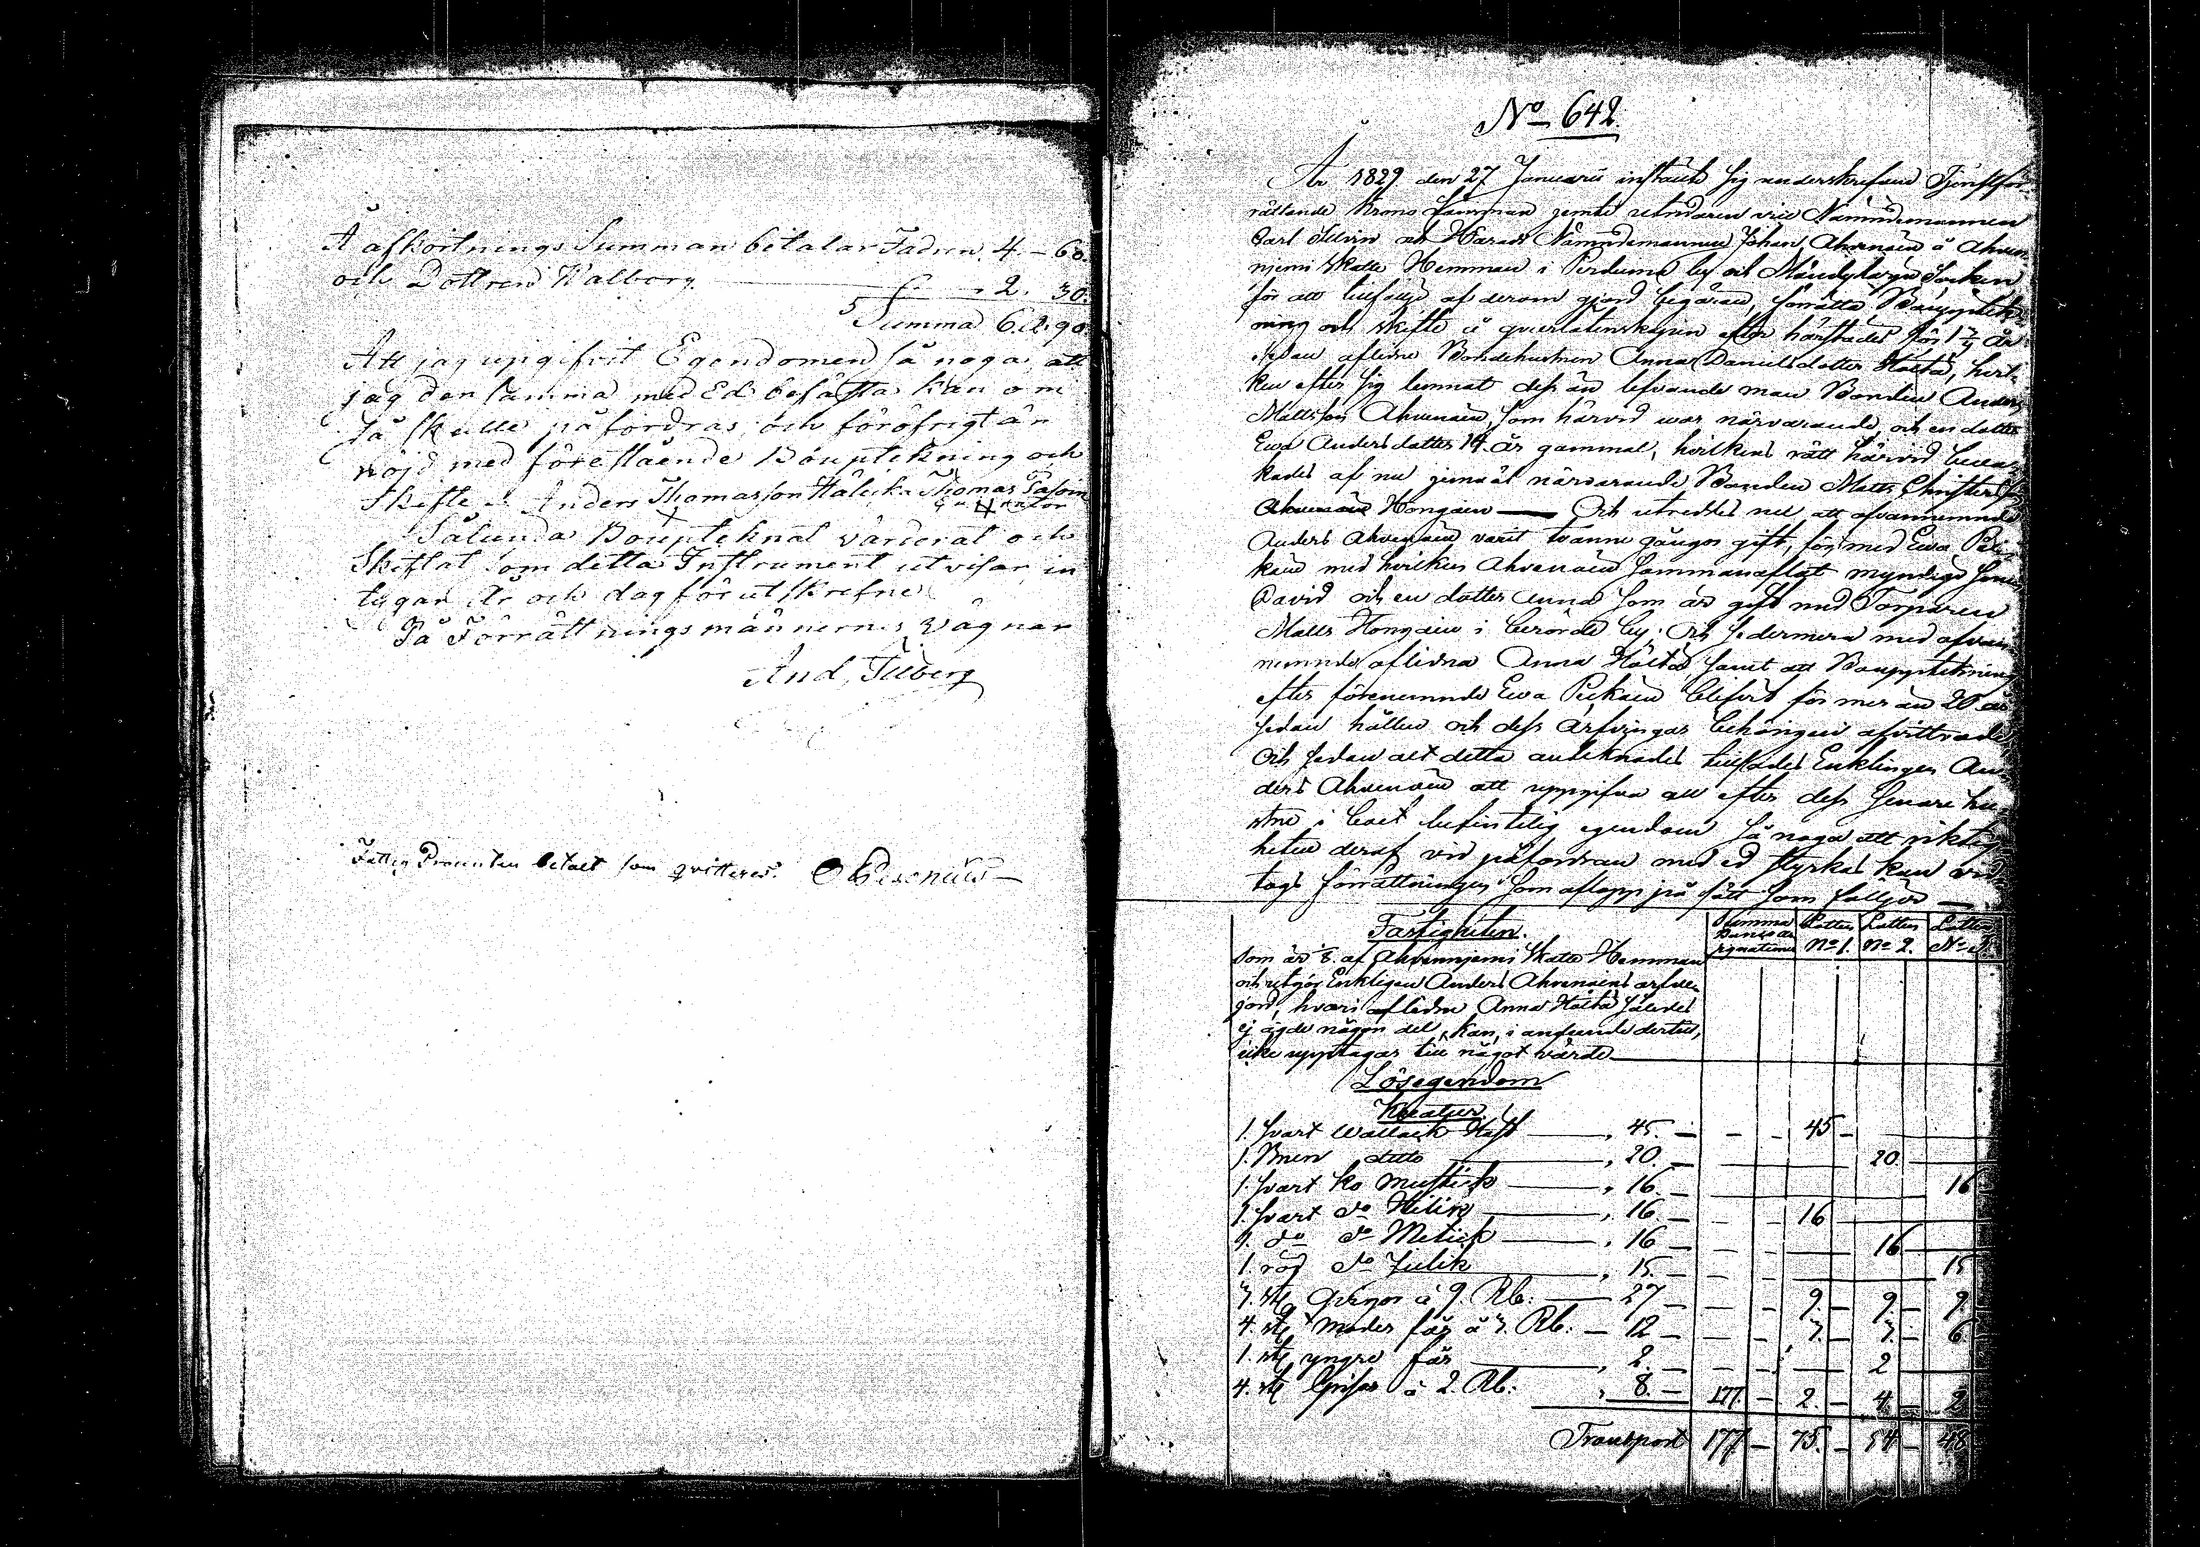 Å afkortnings Summan betalar Fadren 4. – 60.
och Dottren Walborg 2. 30.
Summa 6. 90.
Att jag upgifvit Egendomen så noga, att
jag den samma med Ed besäffta kan om
så skulle påfordras, och föröfrigt är
nöjd med föreslående Bouptekning och
Skifte Anders Thomasson Thomas
Sålunda Boupteknat värderat och
Skiftat som detta Instrument utvisar, in
tygar År och dag förutskrefne
På Förrättningsmännernes vägnar
And. Tilberg
Fattig Procenten betalt som qvitteres.
No 642
År 1829 den 27 Januarii instälte sig underskrefned Tjenstför-
rättande Krono Länsman jemte Nämndemannen
Carl och Härads Nämndemannen Johan Ahvenain å Ahven-
njemi Skatte Hemman i by och Mändyharju Socken
för att tillföljd af derom gjord begäran, förrätta Bouppteck-
ning och skifte å qvarlåtenskapen efter härstädes för 1 1/2 år
sedan aflidne Bondehustrun Anna Danielsdotter Hältä, hvil-
ken efter sig lemnat dess än lefvande man Bonden Anders
Mattsson Ahvenain, som härvid war närvarande, och en dotter
Ewa Andersdotter 14 år gammal, hvilkens rätt härvid beva-
kades af nu jemväl närvarande Bonden Matts Christersson
Hongain — Och utreddes nu att ofvannemnde
Anders Ahvenain varit tvänne gångor gift, förr med Ewa Pek-
kain med hvilken Ahvenain sammanaflat myndige sonen
David och en dotter Anna som är gift med Torparen
Matts Hongain i berörde by; Och sedermera med ofvan-
nemnde aflidna Anna Hältä samt att Bouppteckning
efter förenemnde Ewa Pekkain blifvit för mer än 20 år
sedan hållen och dess arfvingar behörigen afvittrade
Och sedan alt detta antecknades tillsades Enklingen An-
ders Ahvenain att uppgifva all efter dess senare hu-
stru i boet befintelig egendom så noga att riktig-
heten deraf vid påfordran med ed styrkas kan vid-
togs förrättningen som aflopp på sätt som följer —
Fastigheten. Summa Banco As signationer Lotten No 1. Lotten No 2. Lotten No 3.
Som är 1/8 af Ahvennjemi Skatte Hemman
och utgör Enklingen Anders Ahvenains arfve-
jord, hvari aflidne Anna Hältä således
ej ägde någon del, kan, i anseende dertill,
icke upptagas till något värde
Lösegendom
Kreatur
1. svart Wallack Häst 45. – 45 –
1. Brun ditto 20. – 20.
1. svart ko Mustick 16. – 16
1. svart do 16 – 16
1. do do Metick 16 – 16
1. röd do 15. – 15
3. st. Qvigor à 9. Rb. 27 – 9. – 9. – 9.
4. st. Moder får à 3. Rb. – 12 – 3. – 3. – 6.
1. st. yngre får 2. – 2
4. st. Grisar à 2. Rb. 8. – 177. – 2. – 4. – 2
Transport 177 – 75. – 54 – 48